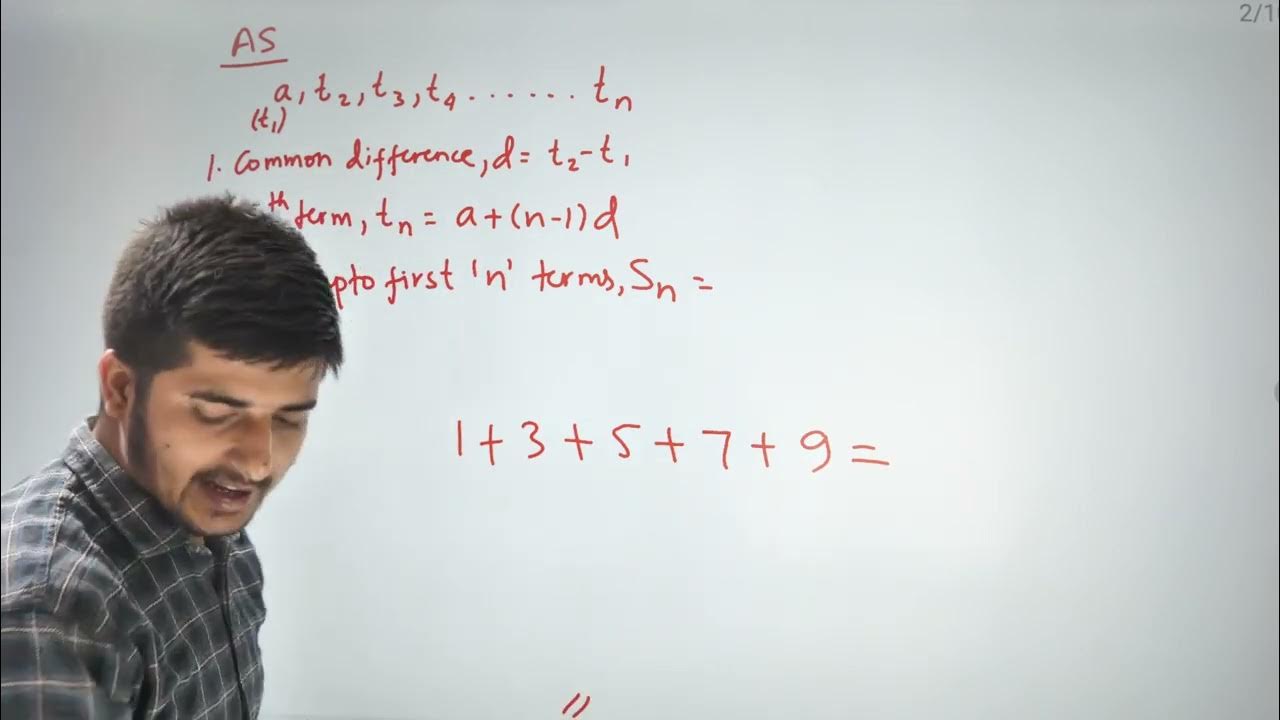 2/1
AS
a, t₂, t₃, t₄ ....... tₙ
(t₁)
1. Common difference, d = t₂ - t₁
th term, tₙ = a + (n-1)d
pto first 'n' terms, Sₙ =
1 + 3 + 5 + 7 + 9 =